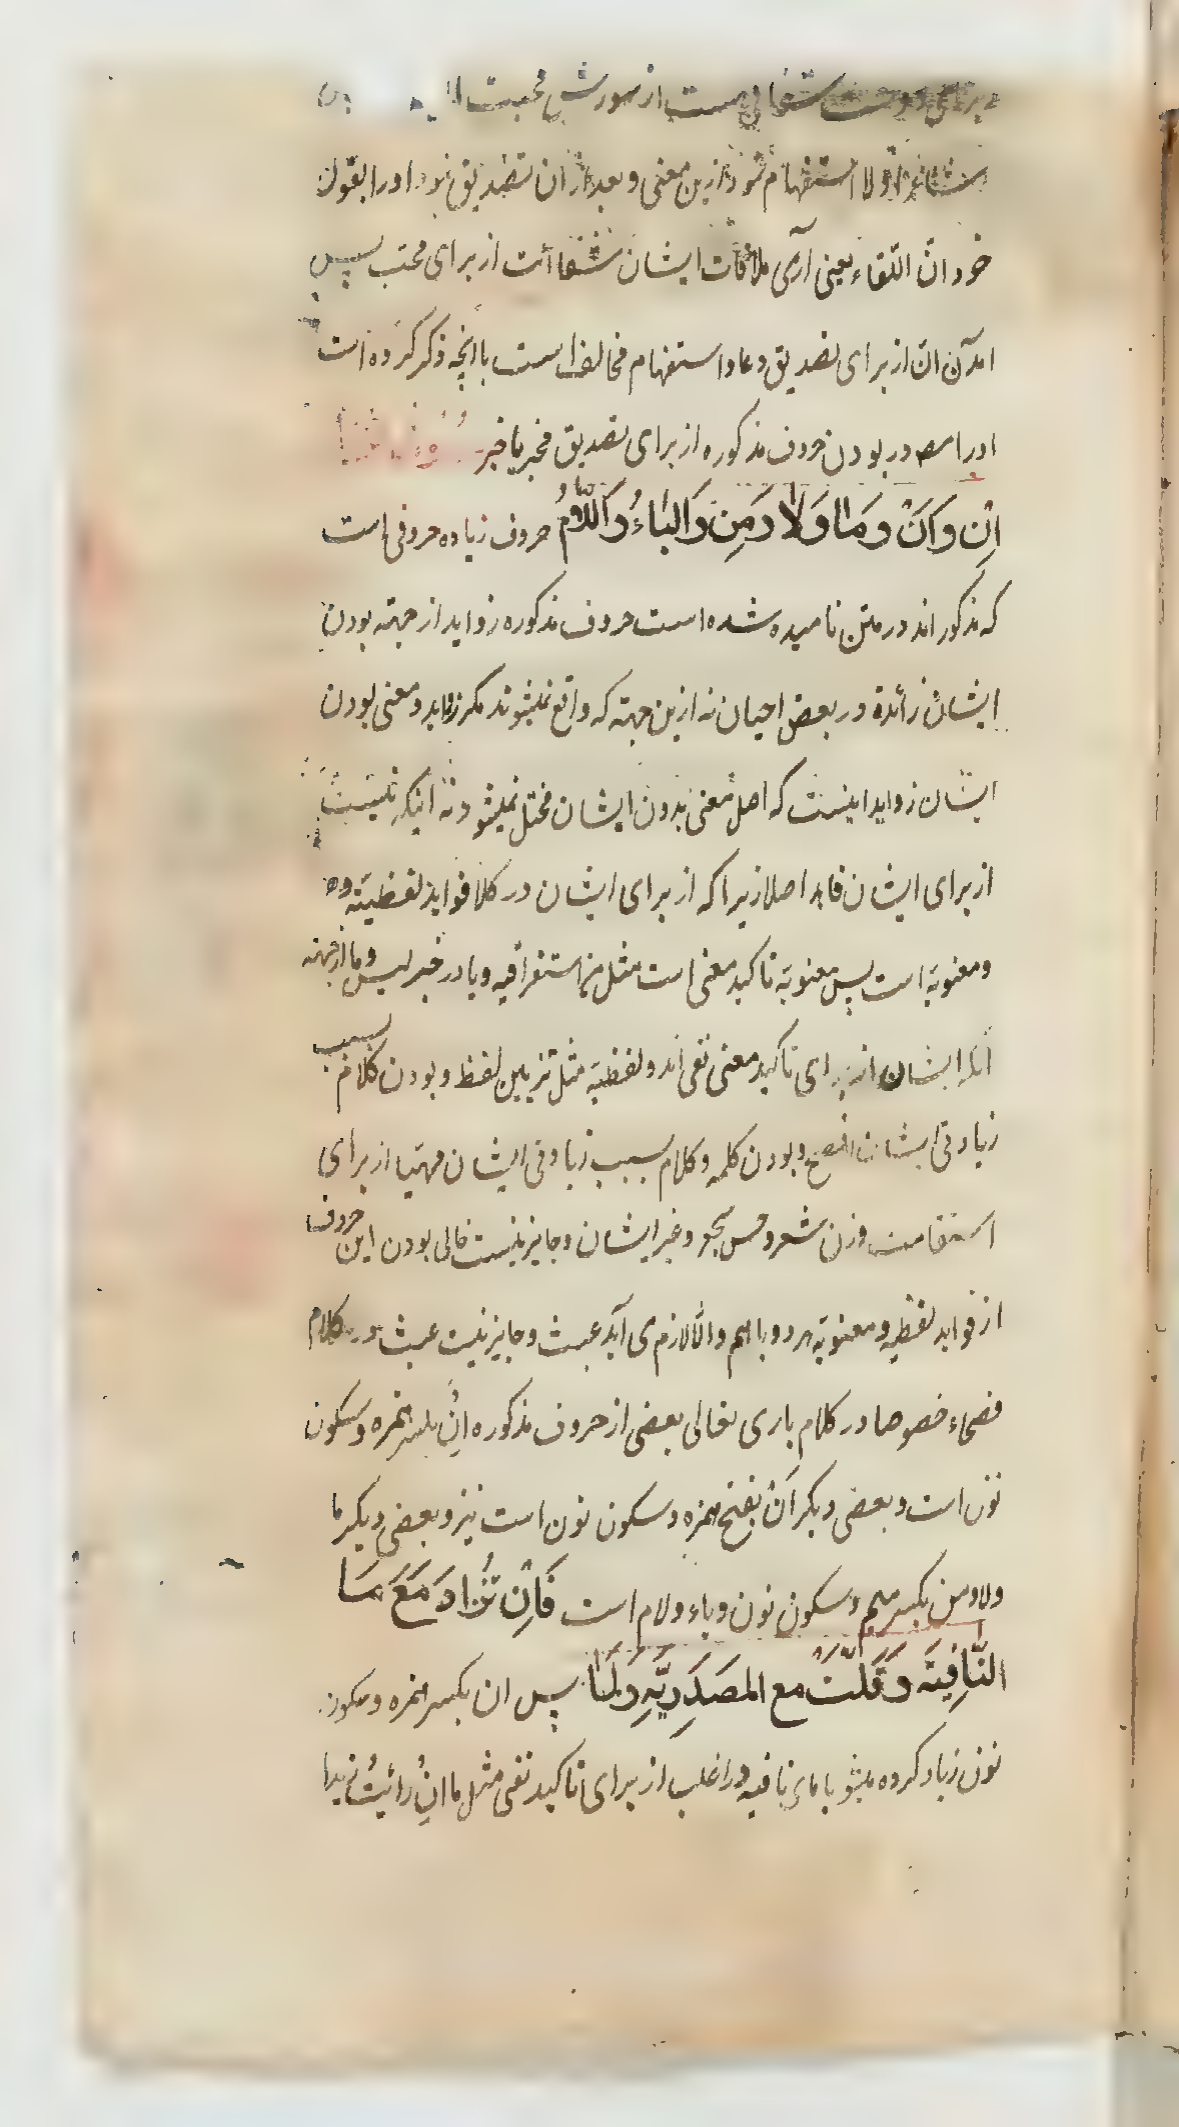 از سورش محبت
شاعر اولا استفهام نمود ازین معنی و بعد از ان تصدیق نمود اورا بقول
خود انّ اللّقاء یعنی آری ملاقات ایشان شفاأت از برای محب پس
امدن ان از برای تصدیق دعا و استفهام مخالف است با انچه ذکر کرده است
در بودن حروف مذکوره از برای تصدیق مخبر یا خبر
اِنْ وَاَنْ وَمَا وَلَا وَمِن وَالبَاءُ وَاللَّامُ حروف زیاده حروفی است
که مذکور اند در متن نامیده شده است حروف مذکوره زواید از جهته بودن
ایشان زائدة در بعض احیان نه ازین جهته که واقع نمیشوند مکر زاید و معنی بودن
ایشان زواید اینست که اصل معنی بدون ایشان مختل نمیشود نه اینکه نیست
از برای ایشان فایده اصلا زیرا که از برای ایشان در کلام فواید لفظیّته
و معنویّه است پس معنویّه تاکید معنی است مثل من استغراقیه و با در خبر لیس و ما از جهته
انکه ایشان از برای تاکید معنی نفی اند و لفظیّه مثل تزیین لفظ و بودن کلام بسبب
زیادتی ایشان افصح و بودن کلمه و کلام بسبب زیادتی ایشان مهیّا از برای
استقامت وزن شعر و حسن سجع و غیر ایشان و جایز نیست خالی بودن این حروف
از فواید لفظیه و معنویّه هر دو باهم والّا لازم می آید عبث و جایز نیست عبث در کلام
فصحاء خصوصا در کلام باری تعالی بعضی از حروف مذکوره اِنْ بکسر همزه و سکون
نون است و بعضی دیکر اَنْ بفتح همزه و سکون نون است نیز و بعضی دیکر ما
ولا و من بکسر میم و سکون نون و باء و لام است فَاِنْ تُزَادَ مَعَ مَا
النَّافِیَه وَقَلَّتْ مع المصَدَرِیَّهِ وَلَمَّا پس ان بکسر همزه و سکون
نون زیاد کرده میشو با مای نافیه در اغلب از برای تاکید نفی مثل ما اِنْ رائیتُ زیدا